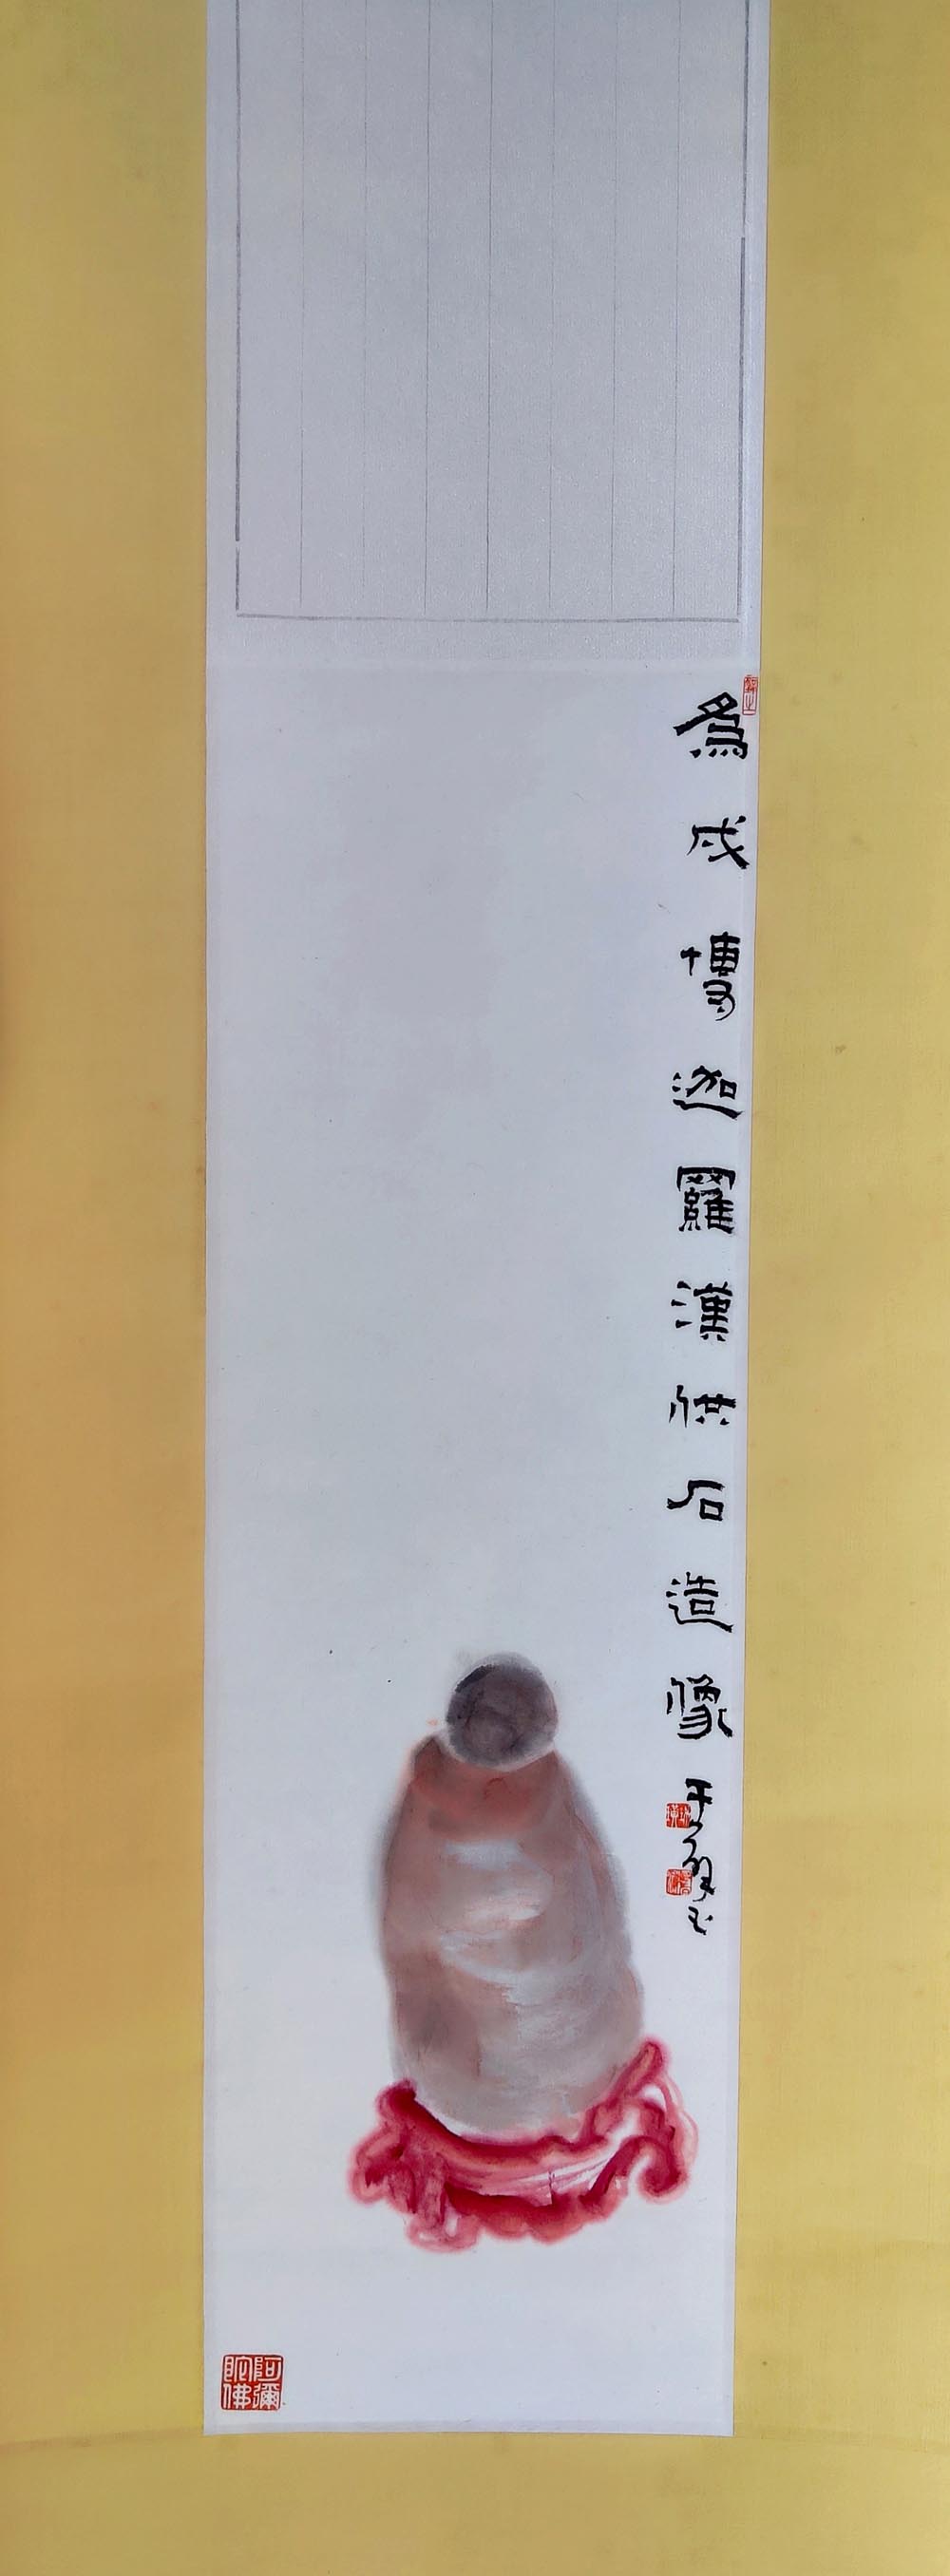 為戍博迦羅漢供石造像
阿彌陀佛